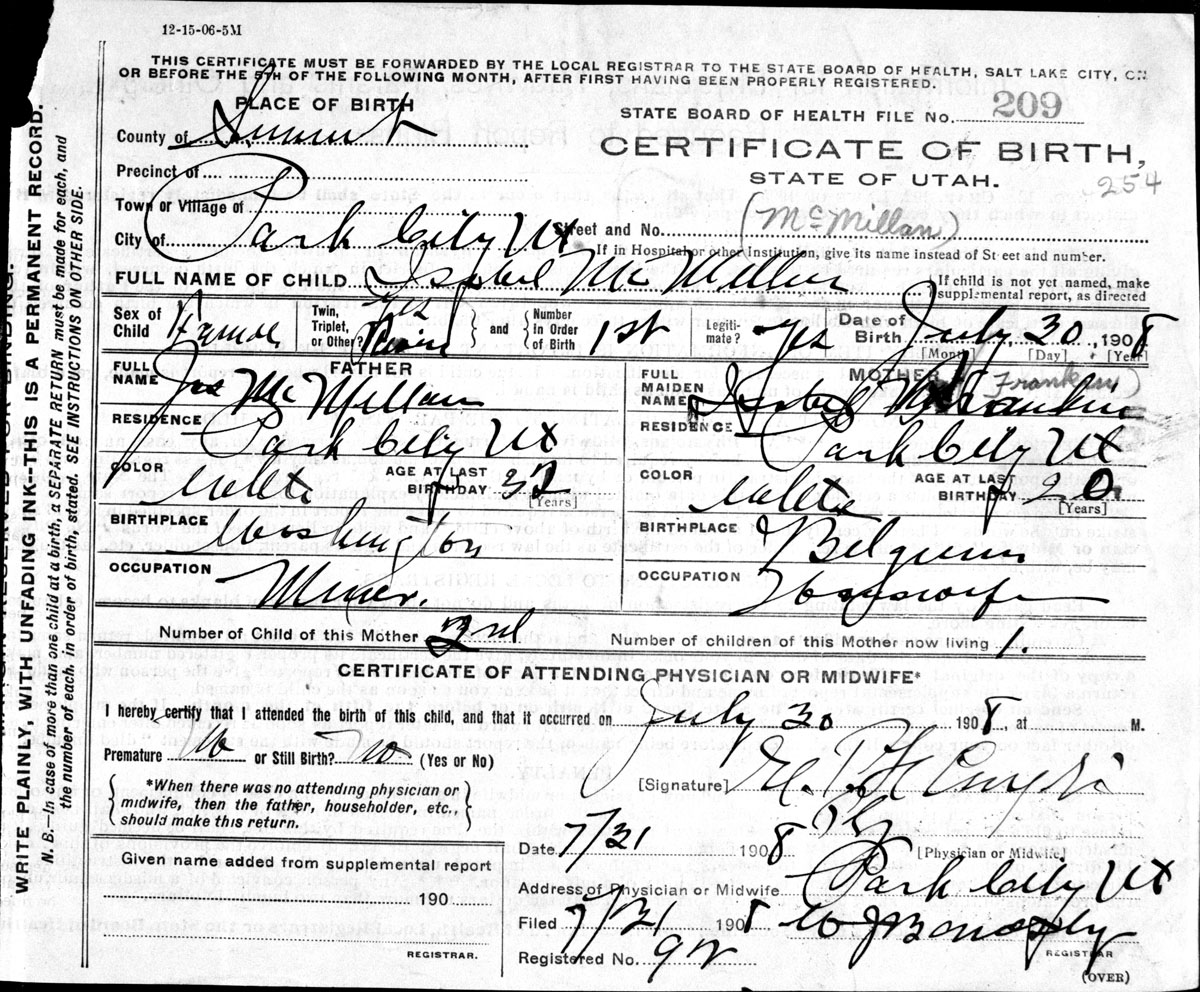 12-15-06-5M
THIS CERTIFICATE MUST BE FORWARDED BY THE LOCAL REGISTRAR TO THE STATE BOARD OF HEALTH, SALT LAKE CITY, ON
OR BEFORE THE 5TH OF THE FOLLOWING MONTH, AFTER FIRST HAVING BEEN PROPERLY REGISTERED.
PLACE OF BIRTH
STATE BOARD OF HEALTH FILE No. 209
County of Summit
CERTIFICATE OF BIRTH,
Precinct of
STATE OF UTAH.
254
Town or Village of
City of Park City Ut
Street and No.
(McMillan)
If in Hospital or other Institution, give its name instead of Street and number.
FULL NAME OF CHILD Isabel McMillan
If child is not yet named, make supplemental report, as directed
Sex of Child
Twin, Triplet, or Other? Yes
and
Number in Order of Birth 1st
Legitimate? Yes
Date of Birth July 30 1908
[Month] [Day] [Year]
FATHER
FULL NAME Jas McMillan
RESIDENCE Park City Ut
COLOR White
AGE AT LAST BIRTHDAY 32
[Years]
BIRTHPLACE Washington
OCCUPATION Miner.
MOTHER
FULL MAIDEN NAME Isabel
RESIDENCE Park City Ut
COLOR White
AGE AT LAST BIRTHDAY 20
[Years]
BIRTHPLACE Belgium
OCCUPATION Housewife
Number of Child of this Mother 2nd
Number of children of this Mother now living 1.
CERTIFICATE OF ATTENDING PHYSICIAN OR MIDWIFE*
I hereby certify that I attended the birth of this child, and that it occurred on July 30 1908, at M.
Premature No or Still Birth? No (Yes or No)
[Signature]
*When there was no attending physician or
midwife, then the father, householder, etc.,
should make this return.
Date 7/31 1908
[Physician or Midwife]
Given name added from supplemental report
190
REGISTRAR.
Address of Physician or Midwife Park City Ut
Filed 7/31 1908
REGISTRAR
Registered No. 92
(OVER)
MARGIN RESERVED FOR BINDING.
WRITE PLAINLY, WITH UNFADING INK-THIS IS A PERMANENT RECORD.
N. B.—In case of more than one child at a birth, a SEPARATE RETURN must be made for each, and
the number of each, in order of birth, stated. SEE INSTRUCTIONS ON OTHER SIDE.